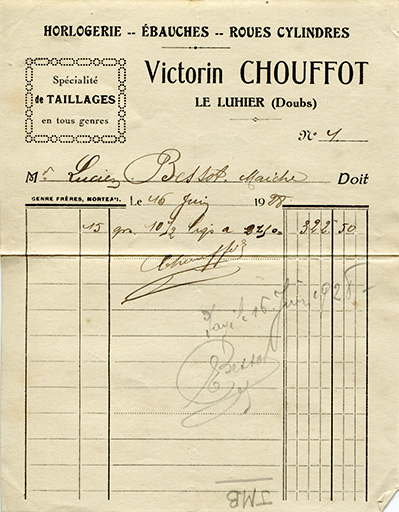 HORLOGERIE -- ÉBAUCHES -- ROUES CYLINDRES
Spécialité
de TAILLAGES
en tous genres
Victorin CHOUFFOT
LE LUHIER (Doubs)
N° 1
Mr Lucien Bessot. Maiche Doit
GENRE FRÈRES, MORTEAU.
Le 16 Juin 1928
15 grs 10 1/2 a 322 50
Payé le 16 Juin 1928
Bessot
JMB